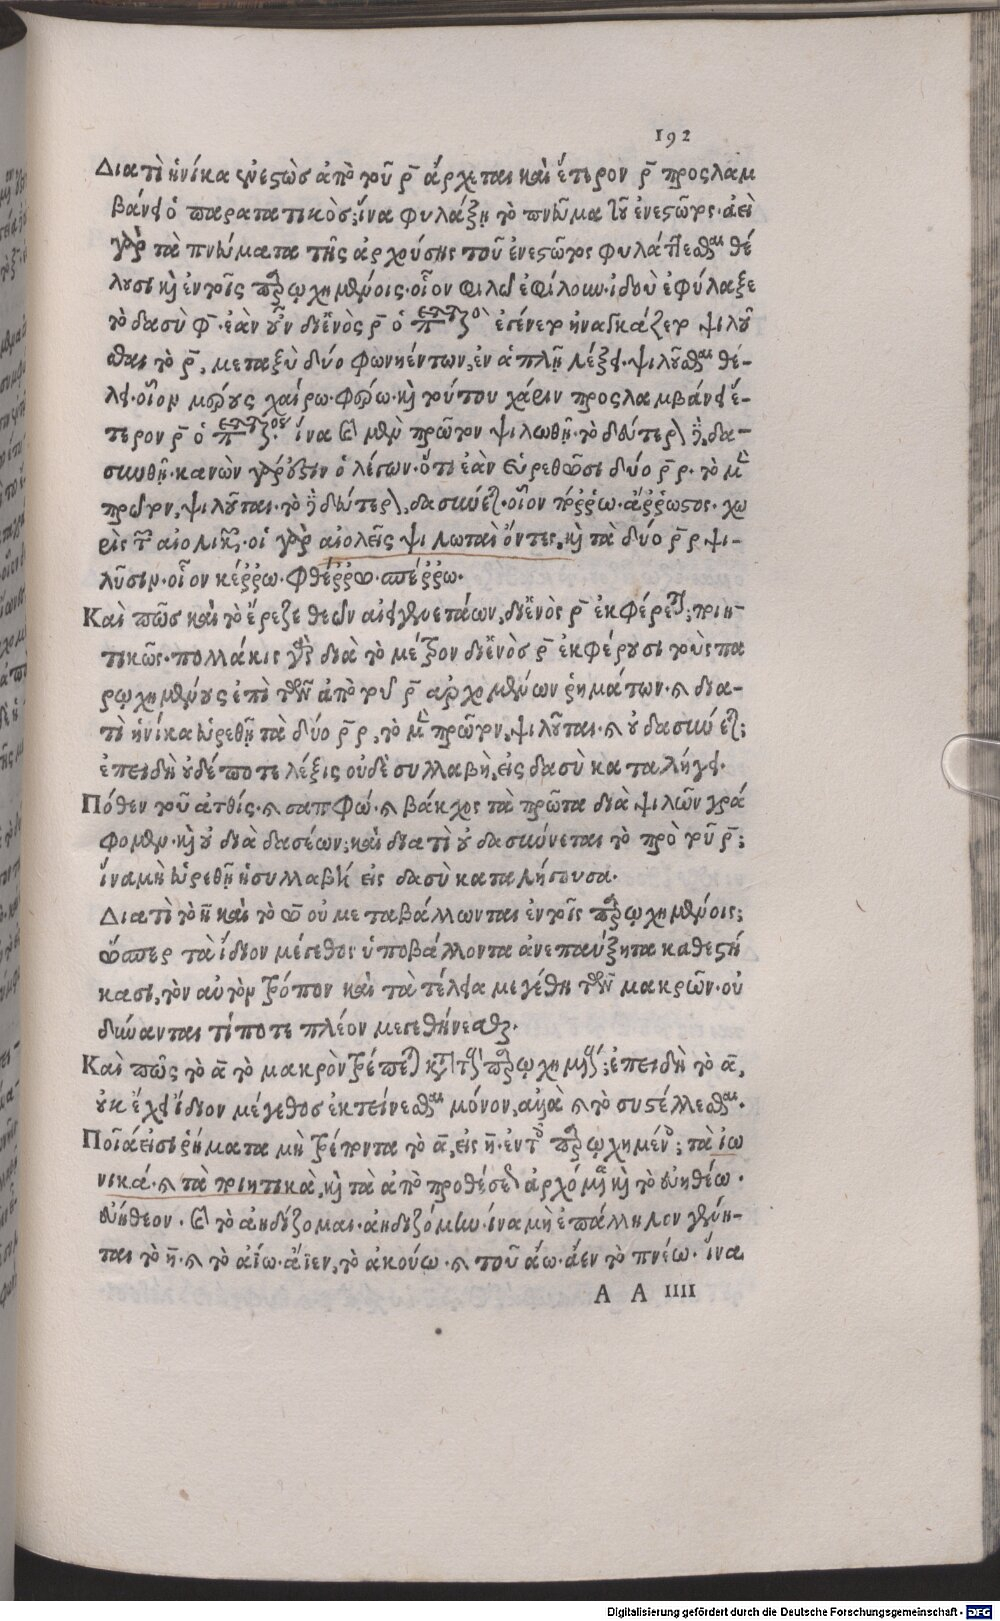 192
Διατὶ ἡνίκα ὁ ἐνεστὼς ἀπὸ τοῦ ρ̄ ἄρχεται καὶ ἕτερον ρ̄ προςλαμ
βάνει ὁ παρατατικὸς; ἵνα φυλάξῃ τὸ πνεῦμα τοῦ ἐνεστῶτος· ἀεὶ
γὰρ τὰ πνεύματα τῆς ἀρχούσης τοῦ ἐνεστῶτος φυλάττεσθαι θέ
λουσι κὶ ἐν τοῖς παρῳχημένοις· οἷον φιλῶ ἐφίλουν· ἰδοὺ ἐφύλαξε
τὸ δασὺ φ̄· ἐὰν οὖν δι' ἑνὸς ρ̄ ὁ ἐγένετο ἠναγκάζετο ψιλοῦ
σθαι τὸ ρ̄, μεταξὺ δύο φωνηέντων, ἐν ἁπλῇ λέξει· ψιλοῦσθαι θέ-
λει· οἷον μάρους χαίρω· φάρω· κὶ τούτου χάριν προςλαμβάνει ἕ-
τερον ρ̄ ὁ ἵνα τὸ μὲν πρῶτον ψιλωθῇ· τὸ δεύτερον δὲ, δα-
συνθῇ· κανὼν γάρ ἐστιν ὁ λέγων· ὅτι ἐὰν εὑρεθῶσι δύο ρ̄ ρ̄· τὸ μὲν
πρῶτον, ψιλοῦται· τὸ δὲ δεύτερον, δασύνεται· οἷον ἔῤῥω· ἄῤῥωστος· χω
ρὶς τῶν αἰολικῶν· οἱ γὰρ αἰολεῖς ψιλωταὶ ὄντες, κὶ τὰ δύο ρ̄ ρ̄ ψι-
λοῦσιν· οἷον κέῤῥω· φθέῤῥω· σπέῤῥω.
Καὶ πῶς καὶ τὸ ἔρεζε θεῶν αἰειγενετάων, δι' ἑνὸς ρ̄ ἐκφέρεται; ποιη-
τικῶς· πολλάκις γὰρ διὰ τὸ μέτρον δι' ἑνὸς ρ̄ ἐκφέρουσι τοὺς πα
ρῳχημένους ἐπὶ τῶν ἀπὸ τοῦ ρ̄ αρχομένων ῥημάτων· κ δια-
τὶ ἡνίκα εὑρεθῇ τὰ δύο ρ̄ ρ̄, τὸ μὲν πρῶτον, ψιλοῦται· κ οὐ δασύνεται;
ἐπειδὴ οὐδέποτε λέξις οὐδὲ συλλαβὴ, εἰς δασὺ καταλήγει.
Πόθεν τοῦ ἀτθίς· κ σαπφώ· κ βάκχος τὰ πρῶτα διὰ ψιλῶν γρά
φομεν· κὶ οὐ διὰ δασέων; καὶ διατὶ οὐ δασύνεται τὸ πρὸ τοῦ ρ̄;
ἵνα μὴ εὑρεθῇ ἡ συλλαβὴ εἰς δασὺ καταλήγουσα.
Διατὶ τὸ η̄ καὶ τὸ ω̄ οὐ μεταβάλλωνται ἐν τοῖς παρῳχημένοις;
ὥσπερ τὰ ἴδιον μέγεθος ὑποβάλλοντα ἀνεπαύξητα καθεστή
κασι, τὸν αὐτὸν τρόπον καὶ τὰ τέλεια μεγέθη τῶν μακρῶν· οὐ
δύνανται τίποτε πλέον μεγεθύνεσθαι.
Καὶ πῶς τὸ ᾱ τὸ μακρὸν τρέπεται κατὰ τοὺς παρῳχημένους; ἐπειδὴ τὸ ᾱ,
οὐκ ἔχει ἴδιον μέγεθος ἐκτείνεσθαι μόνον, αλλὰ κ τὸ συστέλλεσθαι.
Ποῖά εἰσι ῥήματα μὴ τρέποντα τὸ ᾱ, εἰς η̄· ἐν τῷ παρῳχημένῳ; τὰ ἰω
νικά· κ τὰ ποιητικὰ, κὶ τὰ ἀπὸ προθέσεων ἀρχόμενα κὶ τὸ ἀηθέω·
ἀήθεον· κ τὸ ἀηδίζομαι· ἀηδιζόμην· ἵνα μὴ ἐπάλληλον γένη-
ται τὸ η̄· κ τὸ ἀΐω· ἄϊεν, τὸ ἀκούω· κ τοῦ ἄω· ἄεν τὸ πνέω· ἵνα
A A IIII
Digitalisierung gefördert durch die Deutsche Forschungsgemeinschaft - DFG